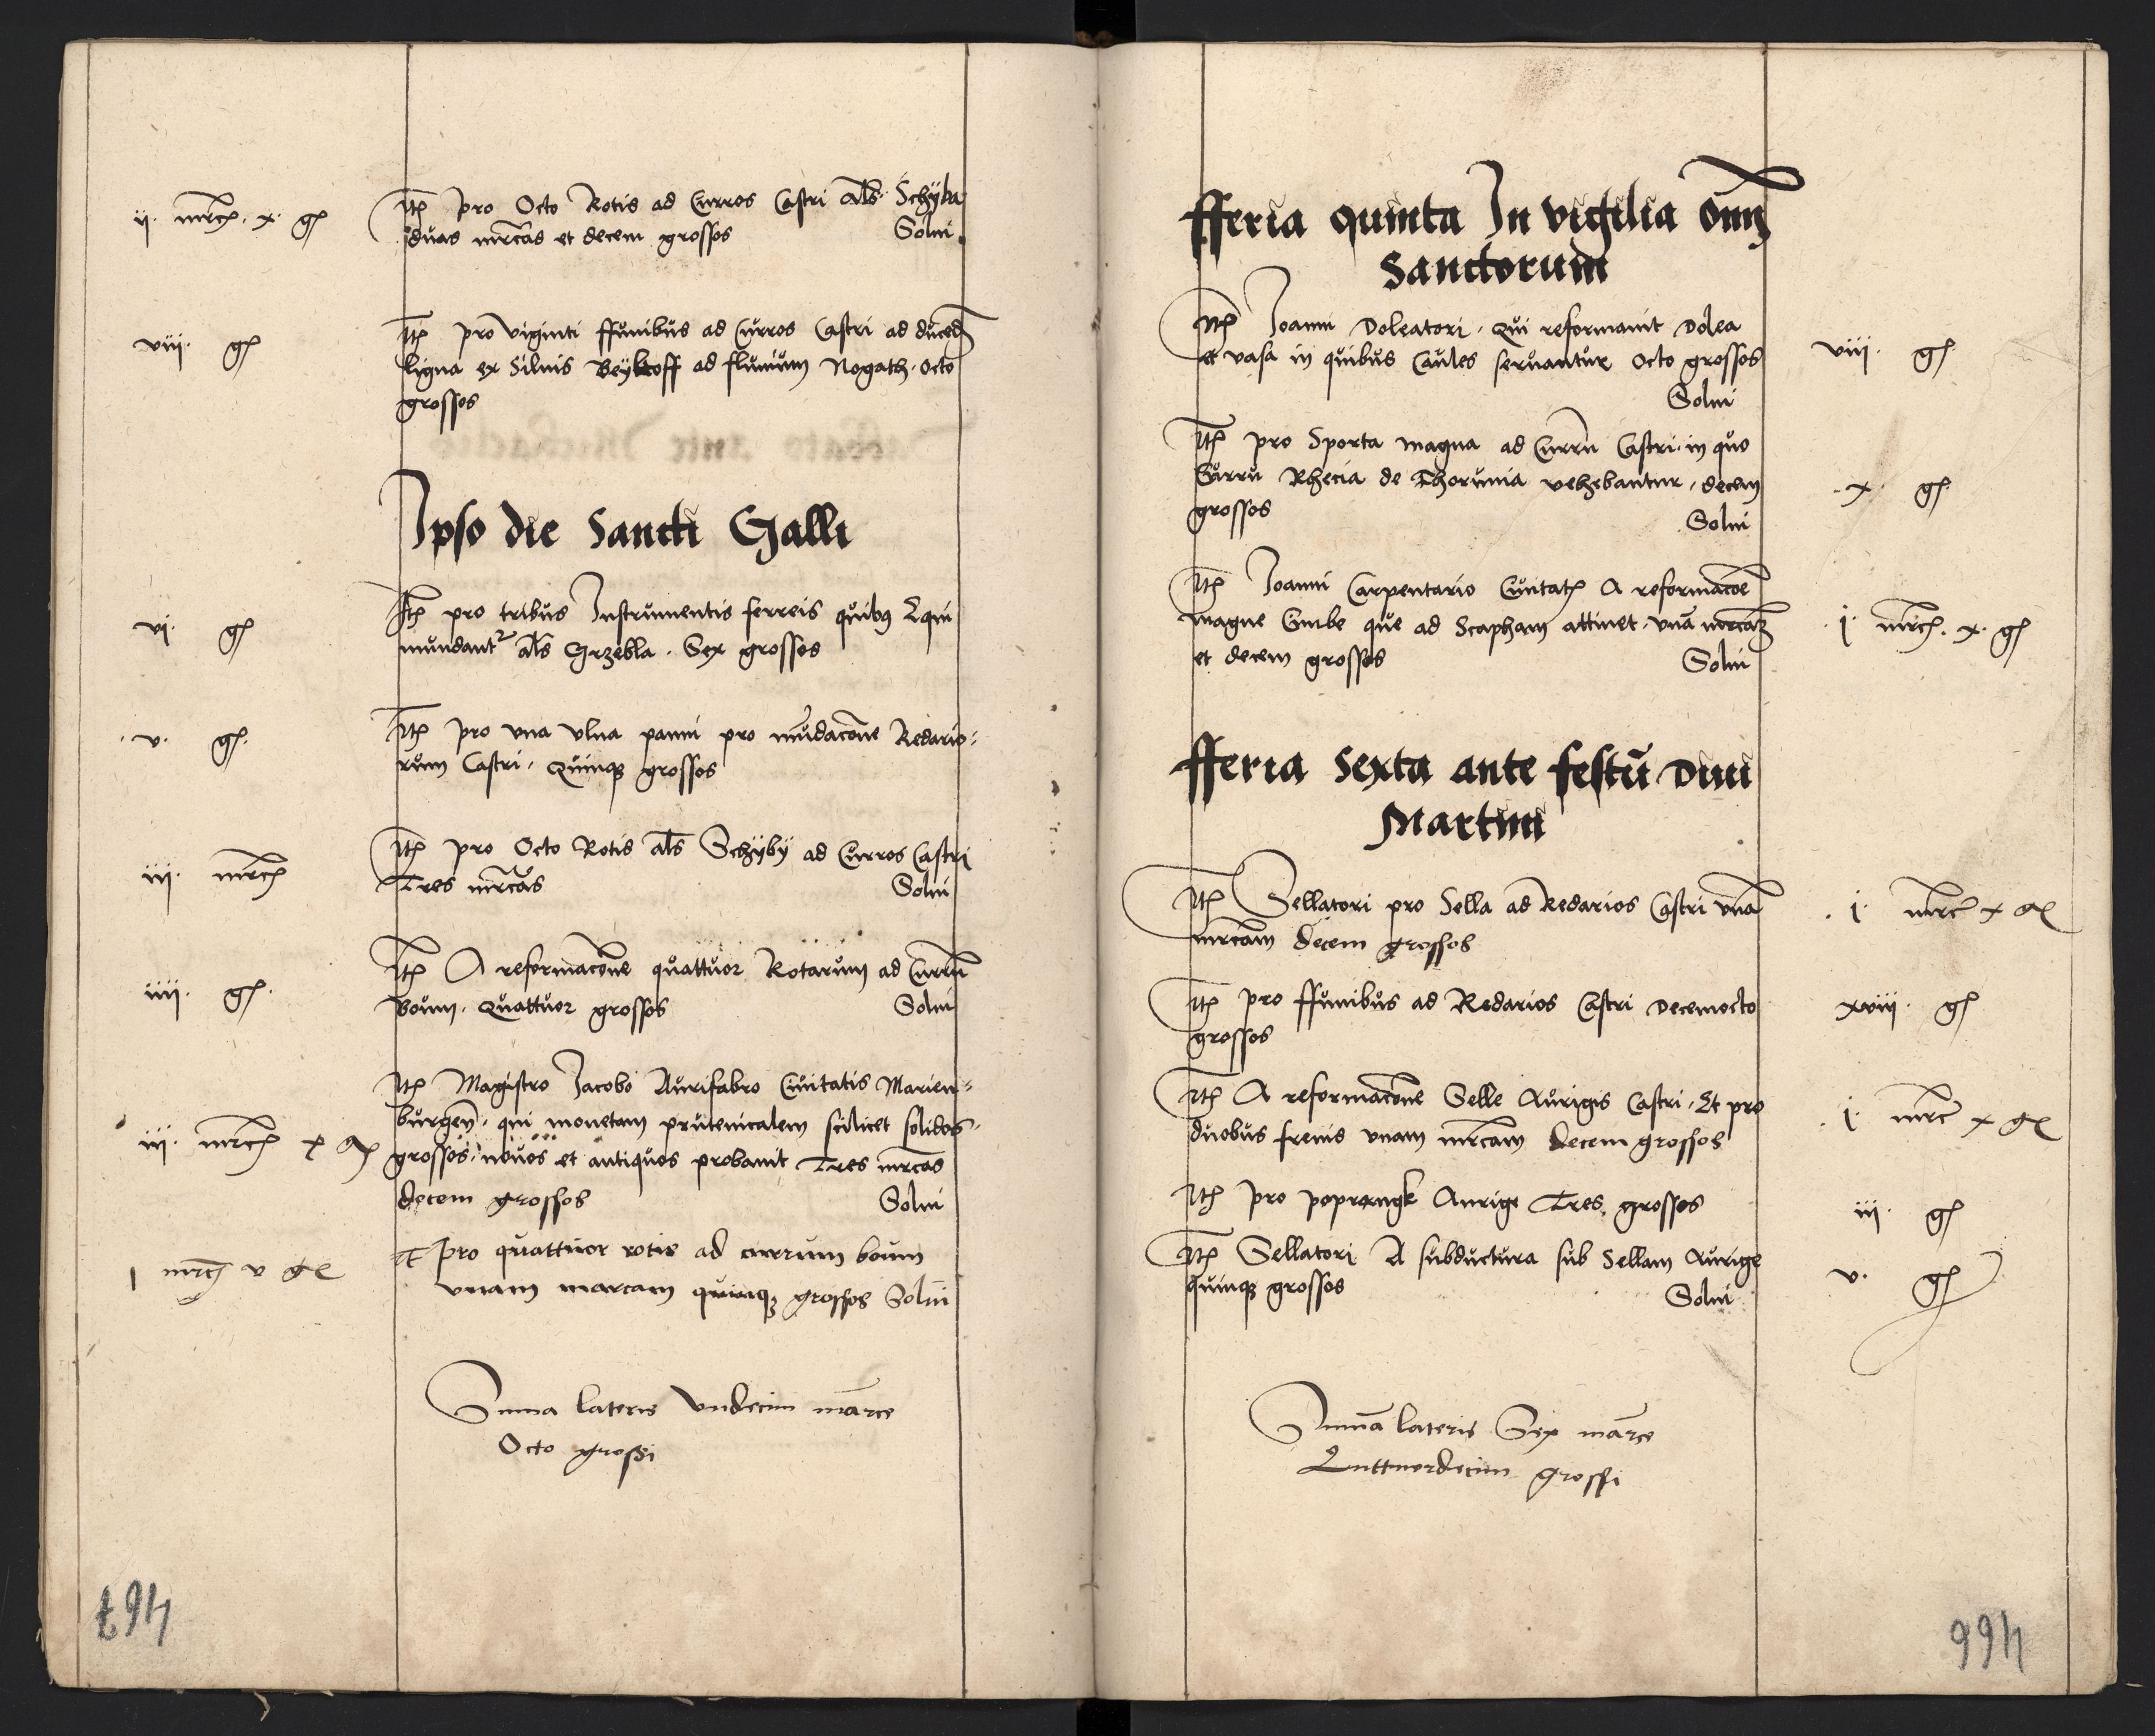 ij. mrcz. x. gs
Itz pro Octo Rotis ad Curros Castri als Schyba
duas mrcas et decem grossos Solui.
viij. gs
Itz pro viginti ffunibus ad Curros Castri ad ducend
ligna ex Siluis ad fluuium Nogath. Octo
grossos
Ipso die Sancti Galli
vj. gs
Itz pro tribus Instrumentis ferreis quibus Equi
mundantr als Grzebla. Sex grossos
v. gs.
Itz pro vna vlna panni pro mudacone Redario=
rum Castri. Quinqz grossos
iij. mrcz
Itz pro Octo Rotis als Schyby ad Curros Castri
Tres mrcas Solui
iiij. gs.
Itz A reformacone quattuor Rotarum ad Curru
Boum. Quattuor grossos Solui
iij. mrcz x gs
Itz Magistro Jacobo Aurifabro Ciuitatis Marien=
burgen. qui monetam prutenicalem scilicet solidos.
grossos. nouos et antiquos probauit Tres mrcas
decem grossos Solui
I mrcz v gs
It pro quattuor rotis ad currum boum
vnam marcam quinqz grossos Solui
Suma lateris Vndecim marce
Octo grossi
467
fferia quinta In vigilia Omniu
Sanctorum
Itz Joanni Doleatori. Qui reformauit Dolea
et vasa in quibus Caules seruantur Octo grossos
Solui
viij. gs
Itz pro Sporta magna ad Curru Castri. in quo
Curru Rhecia de Thorunia vehebantur. decem
grossos Solui
x. gs.
Itz Joanni Carpentario Ciuitatz A reformacoe
magne Cimbe que ad Scapham attinet. vna mrcaz
et decem grossos Solui
j. mrcz. x. gs
fferia Sexta ante festu Diui
Martini
Itz Sellatori pro Sella ad Redarios Castri vna
mrcam decem grossos
j. mrc x gs
Itz pro ffunibus ad Redarios Castri Decemocto
grossos
xviij. gs
Itz A reformacone Selle Aurigis Castri. Et pro
duobus frenis vnam mrcam decem grossos
j. mrc x gs
Itz pro Aurige Tres. grossos
iij. gs
Itz Sellatori A subductura sub Sellam Aurige
quinqz grossos Solui
v. gs
Suma lateris Sex marce
Quttuordecim grossi
466